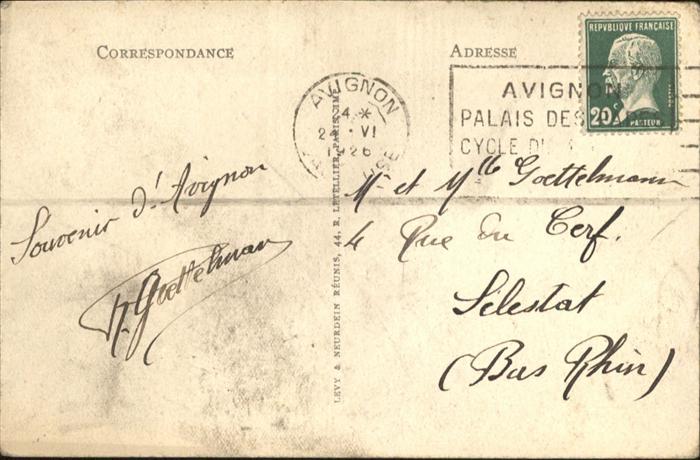 CORRESPONDANCE
ADRESSE
REPUBLIQUE FRANÇAISE
20c
PASTEUR
AVIGNON
4 *
24 · VI
26
AVIGNON
PALAIS DES
CYCLE
Souvenir d'Avignon
Goettelmann
LEVY & NEURDEIN RÉUNIS, 44, R. LETELLIER, PARIS
Mr et Mlle Goettelmann
4 Rue du Cerf.
Sélestat
(Bas Rhin)